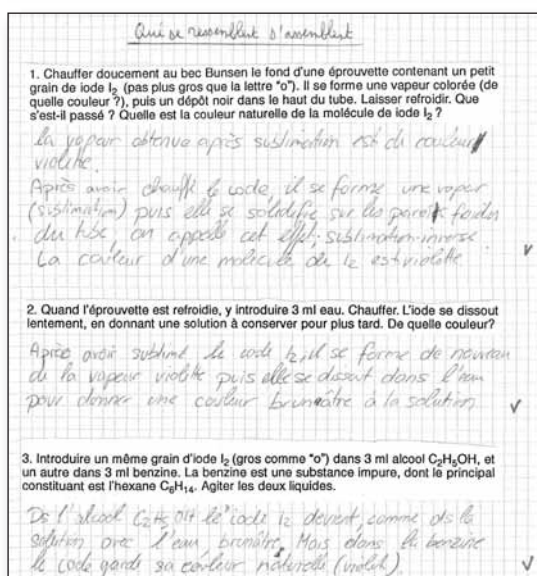 Qui se ressemblent s'assemblent
1. Chauffer doucement au bec Bunsen le fond d'une éprouvette contenant un petit
grain de iode I₂ (pas plus gros que la lettre "o"). Il se forme une vapeur colorée (de
quelle couleur ?), puis un dépôt noir dans le haut du tube. Laisser refroidir. Que
s'est-il passé ? Quelle est la couleur naturelle de la molécule de iode I₂ ?
la vapeur obtenue après sublimation est de couleur
violette.
Après avoir chauffé le iode, il se forme une vapeur
(sublimation) puis elle se solidifie sur les parois froides
du tube, on appelle cet effet: sublimation inverse
La couleur d'une molécule de I₂ est violette
2. Quand l'éprouvette est refroidie, y introduire 3 ml eau. Chauffer. L'iode se dissout
lentement, en donnant une solution à conserver pour plus tard. De quelle couleur?
Après avoir sublimé le iode I₂, il se forme de nouveau
de la vapeur violette puis elle se dissout dans l'eau
pour donner une couleur brunâtre à la solution.
3. Introduire un même grain d'iode I₂ (gros comme "o") dans 3 ml alcool C₂H₅OH, et
un autre dans 3 ml benzine. La benzine est une substance impure, dont le principal
constituant est l'hexane C₆H₁₄. Agiter les deux liquides.
Ds l'alcool C₂H₅OH le iode I₂ devient, comme ds la
solution avec l'eau brunâtre. Mais dans la benzine
le iode garde sa couleur naturelle (violet).